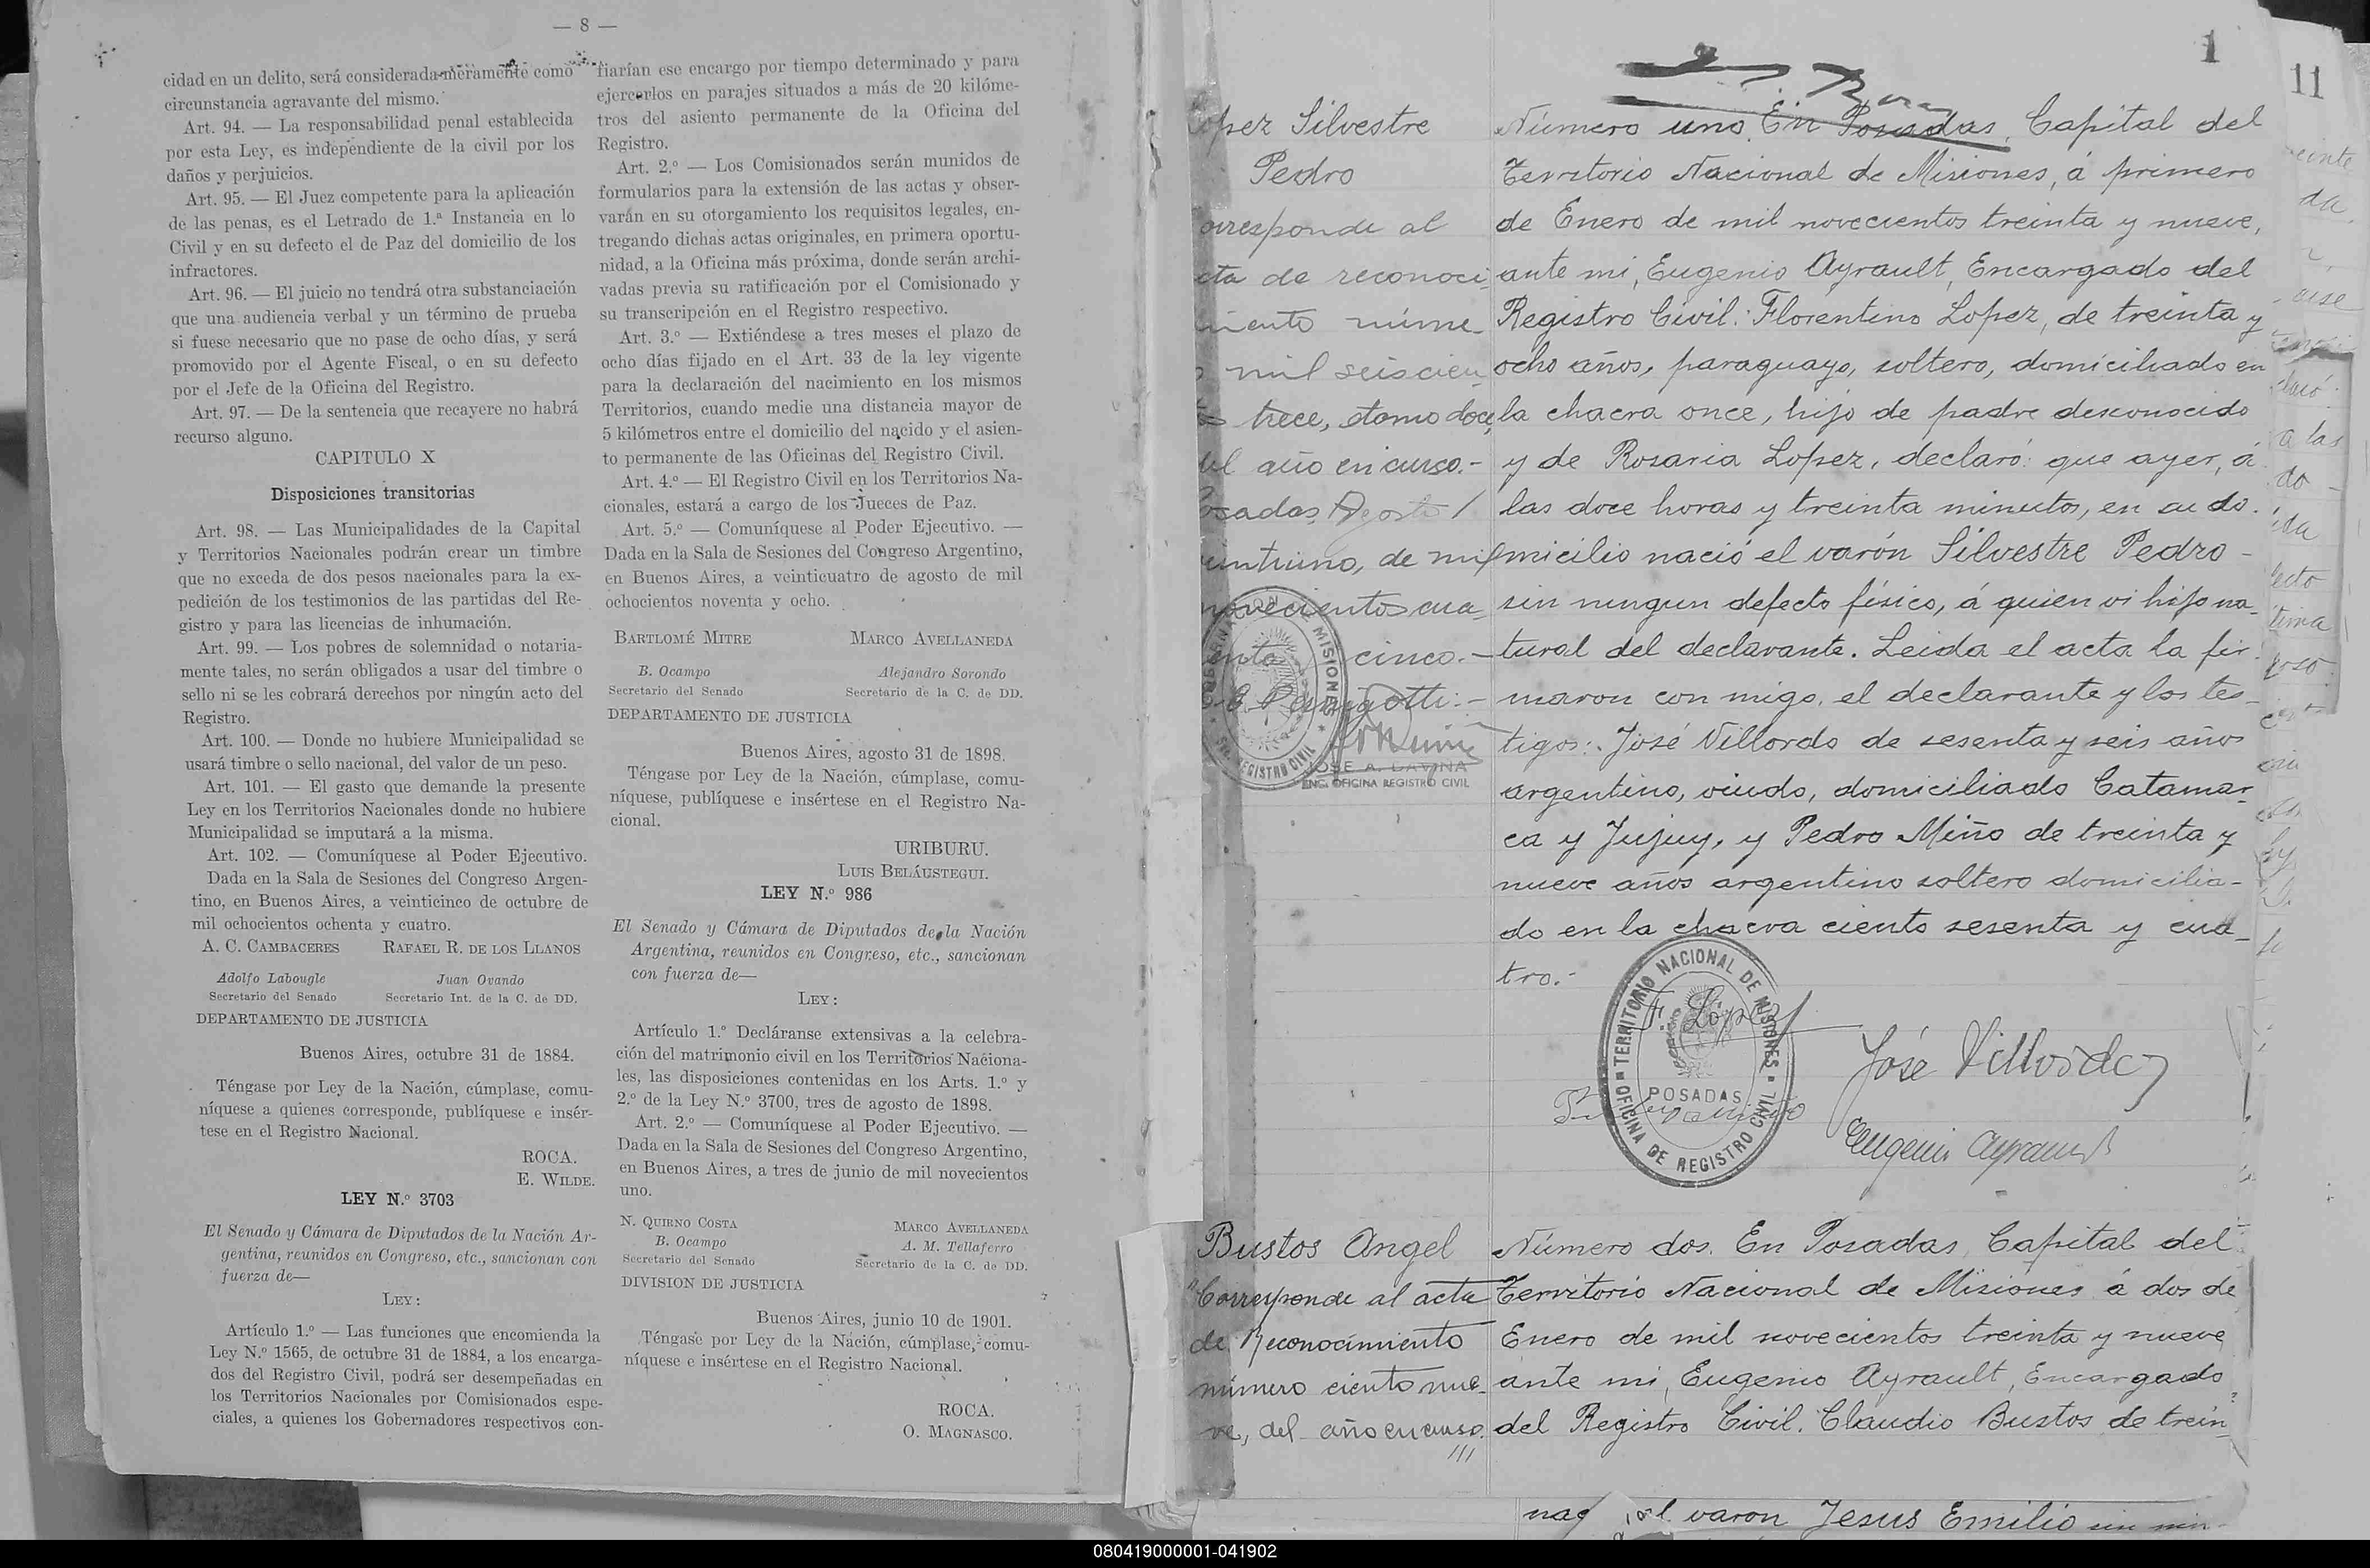 — 8 —
cidad en un delito, será considerada meramente como
circunstancia agravante del mismo.
Art. 94. — La responsabilidad penal establecida
por esta Ley, es independiente de la civil por los
daños y perjuicios.
Art. 95. — El Juez competente para la aplicación
de las penas, es el Letrado de 1.ª Instancia en lo
Civil y en su defecto el de Paz del domicilio de los
infractores.
Art. 96. — El juicio no tendrá otra substanciación
que una audiencia verbal y un término de prueba
si fuese necesario que no pase de ocho días, y será
promovido por el Agente Fiscal, o en su defecto
por el Jefe de la Oficina del Registro.
Art. 97. — De la sentencia que recayere no habrá
recurso alguno.
CAPITULO X
Disposiciones transitorias
Art. 98. — Las Municipalidades de la Capital
y Territorios Nacionales podrán crear un timbre
que no exceda de dos pesos nacionales para la ex-
pedición de los testimonios de las partidas del Re-
gistro y para las licencias de inhumación.
Art. 99. — Los pobres de solemnidad o notaria-
mente tales, no serán obligados a usar del timbre o
sello ni se les cobrará derechos por ningún acto del
Registro.
Art. 100. — Donde no hubiere Municipalidad se
usará timbre o sello nacional, del valor de un peso.
Art. 101. — El gasto que demande la presente
Ley en los Territorios Nacionales donde no hubiere
Municipalidad se imputará a la misma.
Art. 102. — Comuníquese al Poder Ejecutivo.
Dada en la Sala de Sesiones del Congreso Argen-
tino, en Buenos Aires, a veinticinco de octubre de
mil ochocientos ochenta y cuatro.
A. C. CAMBACERES RAFAEL R. DE LOS LLANOS
Adolfo Labougle Juan Ovando
Secretario del Senado Secretario Int. de la C. de DD.
DEPARTAMENTO DE JUSTICIA
Buenos Aires, octubre 31 de 1884.
Téngase por Ley de la Nación, cúmplase, comu-
níquese a quienes corresponde, publíquese e insér-
tese en el Registro Nacional.
ROCA.
E. WILDE.
LEY N.º 3703
El Senado y Cámara de Diputados de la Nación Ar-
gentina, reunidos en Congreso, etc., sancionan con
fuerza de—
LEY:
Artículo 1.º — Las funciones que encomienda la
Ley N.º 1565, de octubre 31 de 1884, a los encarga-
dos del Registro Civil, podrá ser desempeñadas en
los Territorios Nacionales por Comisionados espe-
ciales, a quienes los Gobernadores respectivos con-
fiarían ese encargo por tiempo determinado y para
ejercerlos en parajes situados a más de 20 kilóme-
tros del asiento permanente de la Oficina del
Registro.
Art. 2.º — Los Comisionados serán munidos de
formularios para la extensión de las actas y obser-
varán en su otorgamiento los requisitos legales, en-
tregando dichas actas originales, en primera oportu-
nidad, a la Oficina más próxima, donde serán archi-
vadas previa su ratificación por el Comisionado y
su transcripción en el Registro respectivo.
Art. 3.º — Extiéndese a tres meses el plazo de
ocho días fijado en el Art. 33 de la ley vigente
para la declaración del nacimiento en los mismos
Territorios, cuando medie una distancia mayor de
5 kilómetros entre el domicilio del nacido y el asien-
to permanente de las Oficinas del Registro Civil.
Art. 4.º — El Registro Civil en los Territorios Na-
cionales, estará a cargo de los Jueces de Paz.
Art. 5.º — Comuníquese al Poder Ejecutivo. —
Dada en la Sala de Sesiones del Congreso Argentino,
en Buenos Aires, a veinticuatro de agosto de mil
ochocientos noventa y ocho.
BARTLOMÉ MITRE MARCO AVELLANEDA
B. Ocampo Alejandro Sorondo
Secretario del Senado Secretario de la C. de DD.
DEPARTAMENTO DE JUSTICIA
Buenos Aires, agosto 31 de 1898.
Téngase por Ley de la Nación, cúmplase, comu-
níquese, publíquese e insértese en el Registro Na-
cional.
URIBURU.
LUIS BELÁUSTEGUI.
LEY N.º 986
El Senado y Cámara de Diputados de la Nación
Argentina, reunidos en Congreso, etc., sancionan
con fuerza de—
LEY:
Artículo 1.º Decláranse extensivas a la celebra-
ción del matrimonio civil en los Territorios Naciona-
les, las disposiciones contenidas en los Arts. 1.º y
2.º de la Ley N.º 3700, tres de agosto de 1898.
Art. 2.º — Comuníquese al Poder Ejecutivo. —
Dada en la Sala de Sesiones del Congreso Argentino,
en Buenos Aires, a tres de junio de mil novecientos
uno.
N. QUIRNO COSTA MARCO AVELLANEDA
B. Ocampo A. M. Tellaferro
Secretario del Senado Secretario de la C. de DD.
DIVISION DE JUSTICIA
Buenos Aires, junio 10 de 1901.
Téngase por Ley de la Nación, cúmplase, comu-
níquese e insértese en el Registro Nacional.
ROCA.
O. MAGNASCO.
1
11
opez Silvestre
Pedro
orresponde al
cta de reconoci
miento núme_
mil seiscien
trece, tomo doce,
del año en curso.-
osadas, Agosto
eintiuno, de mil
novecientos cua_
enta cinco.-
JOSE A. LAVIÑA
ENC. OFICINA REGISTRO CIVIL
GOBERNACION DE MISIONES
REGISTRO CIVIL
Número uno. En Posadas, Capital del
Territorio Nacional de Misiones, á primero
de Enero de mil novecientos treinta y nueve,
ante mi, Eugenio Ayrault, Encargado del
Registro Civil: Florentino Lopez, de treinta y
ocho años, paraguayo, soltero, domiciliado en
la chacra once, hijo de padre desconocido
y de Rosaria Lopez, declaró: que ayer, á
las doce horas y treinta minutos, en su do-
micilio nació el varón Silvestre Pedro -
sin ningun defecto físico, á quien vi hijo na_
tural del declarante. Leida el acta la fir-
maron con migo, el declarante y los tes_
tigos: José Villordo de sesenta y seis años
argentino, viudo, domiciliado Catamar_
ca y Jujuy, y Pedro Miño de treinta y
nueve años argentino soltero domicilia-
do en la chacra ciento sesenta y cua_
tro.-
F. López
José Villordo
Eugenio Ayrault
TERRITORIO NACIONAL DE MISIONES
POSADAS
OFICINA DE REGISTRO CIVIL
Bustos Angel
"Corresponde al acta
de Reconocimiento
número ciento nue_
ve, del año en curso.
Número dos. En Posadas, Capital del
Territorio Nacional de Misiones á dos de
Enero de mil novecientos treinta y nueve
ante mi, Eugenio Ayrault, Encargado
del Registro Civil. Claudio Bustos de trein_
varon Jesus Emilio sin nin-
080419000001-041902